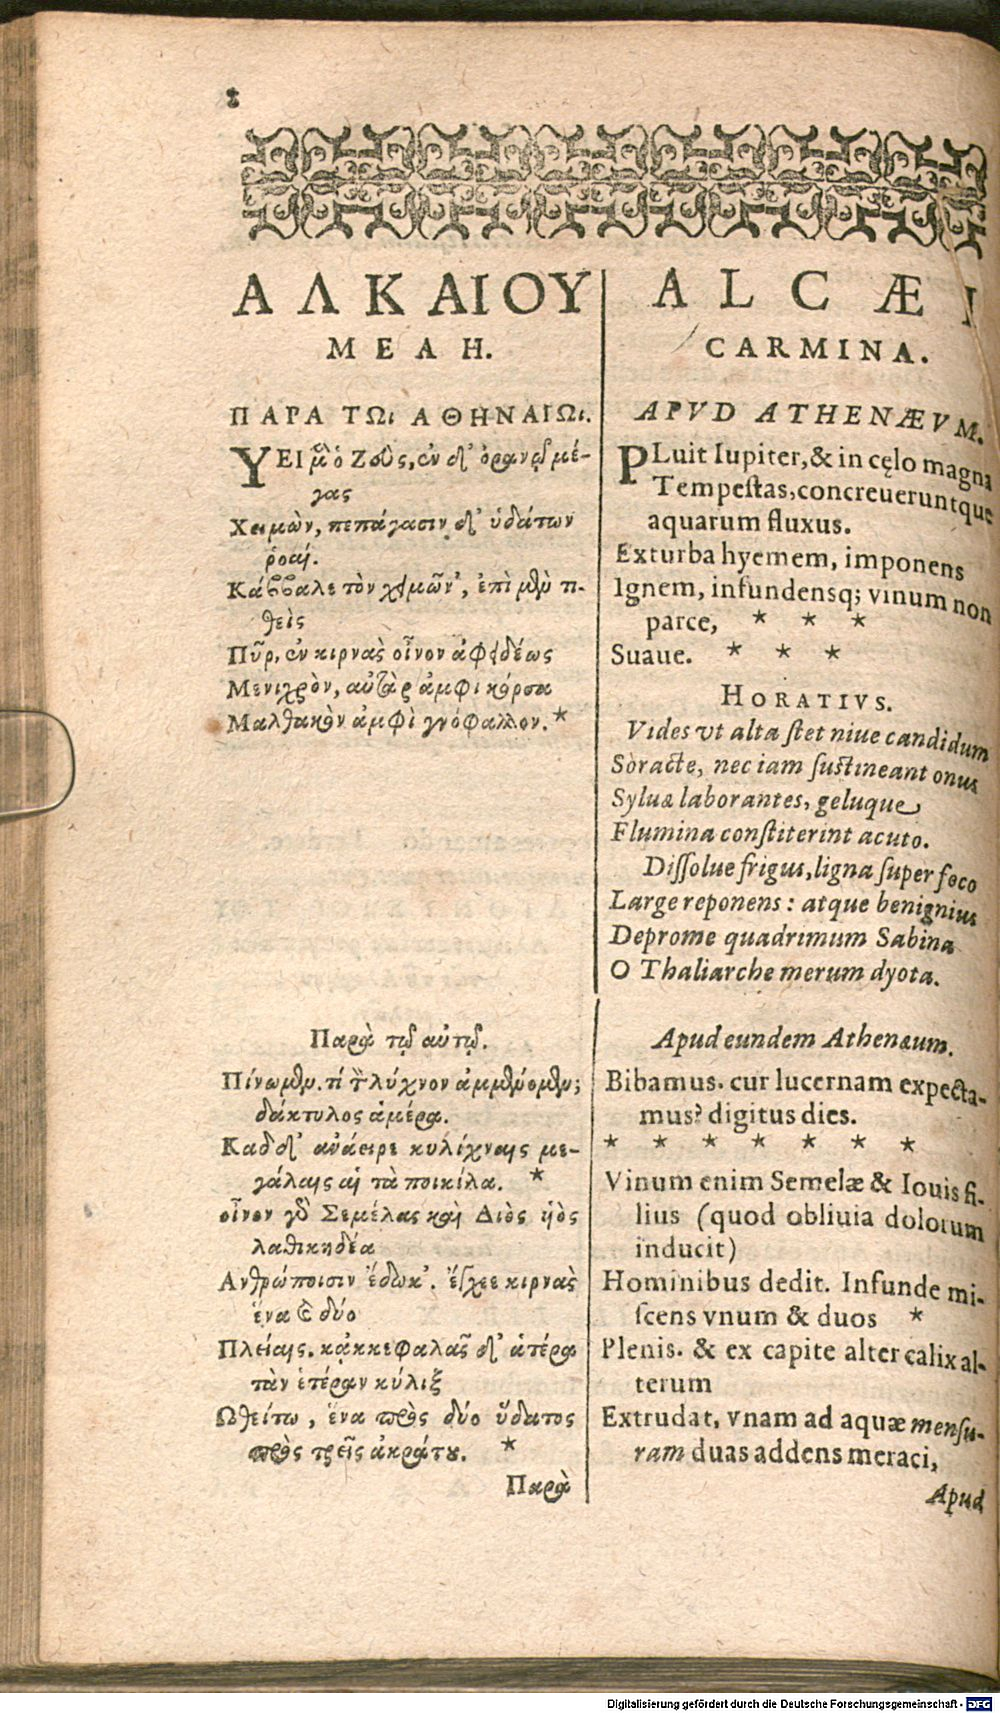 8
ΑΛΚΑΙΟΥ
ΜΕΛΗ.
ΠΑΡΑ ΤΩι ΑΘΗΝΑΙΩι.
ΥΕΙ μὲν ὁ Ζεὺς, ἐν δ' ὀρανῷ μέ-
γας
Χειμὼν, πεπάγασιν δ' ὑδάτων
ῥοαί.
Κάββαλε τὸν χειμῶν', ἐπὶ μὲν τι-
θεὶς
Πῦρ, ἐν κιρνὰς οἶνον ἀφειδέως
Μενιχρὸν, αὐτὰρ ἀμφὶ κόρσα
Μαλθακὸν ἀμφὶ γνόφαλλον. *
Παρὰ τῷ αὐτῷ.
Πίνωμεν. τί τὸ λύχνον ἀμμένομεν;
δάκτυλος ἁμέρα.
Καδδ' ἀνάειρε κυλίχναις με-
γάλαις αἱ τὰ ποικίλα. *
οἶνον γὸ Σεμέλας καὶ Διὸς ἡὸς
λαθικηδέα
Ανθρώποισιν ἔδωκ'. ἔγχεε κιρνὰς
ἕνα καὶ δύο
Πλείαις. κἀκκεφαλᾶς δ' ἁτέρα
τὰν ἑτέραν κύλιξ
Ωθείτω, ἕνα πρὸς δύο ὕδατος
πρὸς τρεῖς ἀκράτου. *
Παρὰ
ALCÆI
CARMINA.
APVD ATHENÆVM.
PLuit Iupiter, & in cęlo magna
Tempestas, concreueruntque
aquarum fluxus.
Exturba hyemem, imponens
Ignem, infundensq; vinum non
parce, * * *
Suaue. * * *
HORATIVS.
Vides vt alta stet niue candidum
Soracte, nec iam sustineant onus
Syluæ laborantes, geluque
Flumina constiterint acuto.
Dissolue frigus, ligna super foco
Large reponens : atque benignius
Deprome quadrimum Sabina
O Thaliarche merum dyota.
Apud eundem Athenæum.
Bibamus. cur lucernam expecta-
mus? digitus dies.
* * * * * * *
Vinum enim Semelæ & Iouis fi-
lius (quod obliuia dolorum
inducit)
Hominibus dedit. Infunde mi-
scens vnum & duos *
Plenis. & ex capite alter calix al-
terum
Extrudat, vnam ad aquæ mensu-
ram duas addens meraci,
Apud
Digitalisierung gefördert durch die Deutsche Forschungsgemeinschaft - DFG